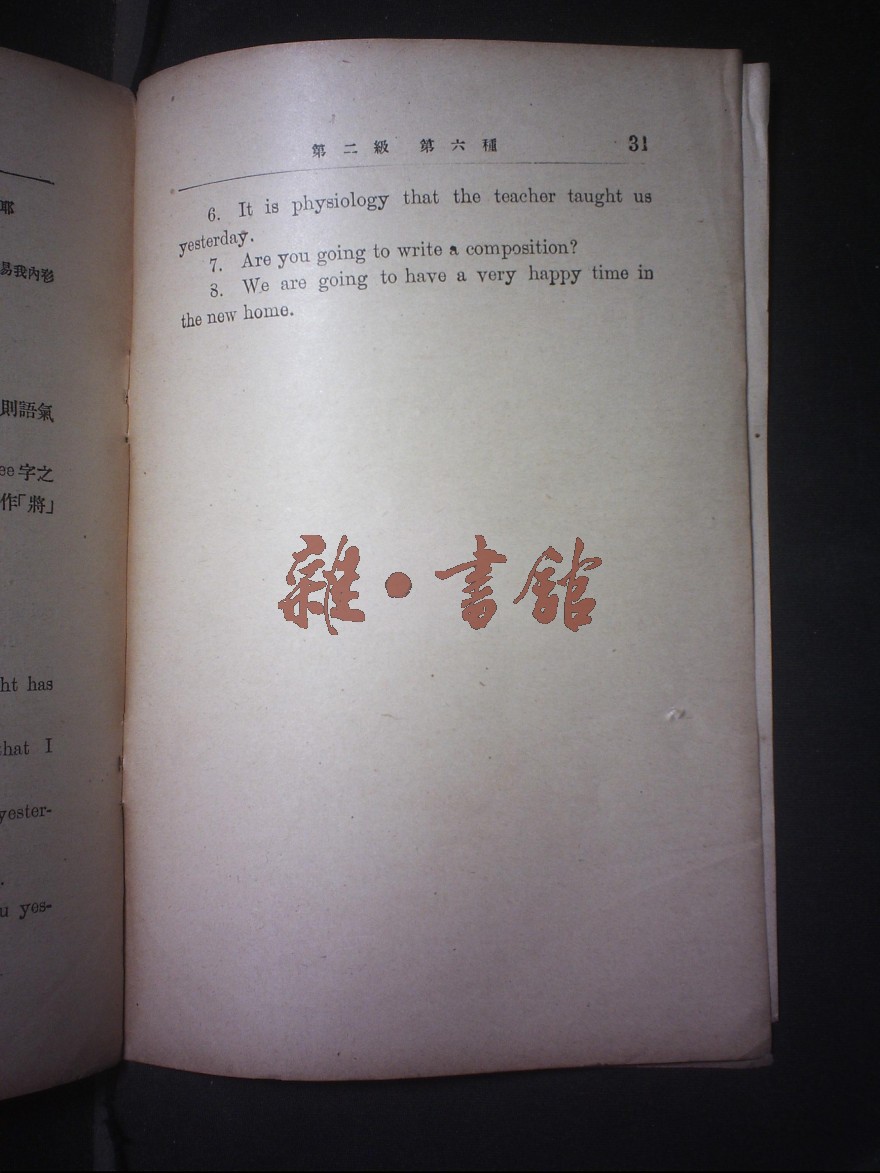 耶
易我內彩
則語氣
ee字之
作「將」
ht has
that I
yester-
u yes-
第二級 第六種 31
6. It is physiology that the teacher taught us
yesterday.
7. Are you going to write a composition?
8. We are going to have a very happy time in
the new home.
雜·書館